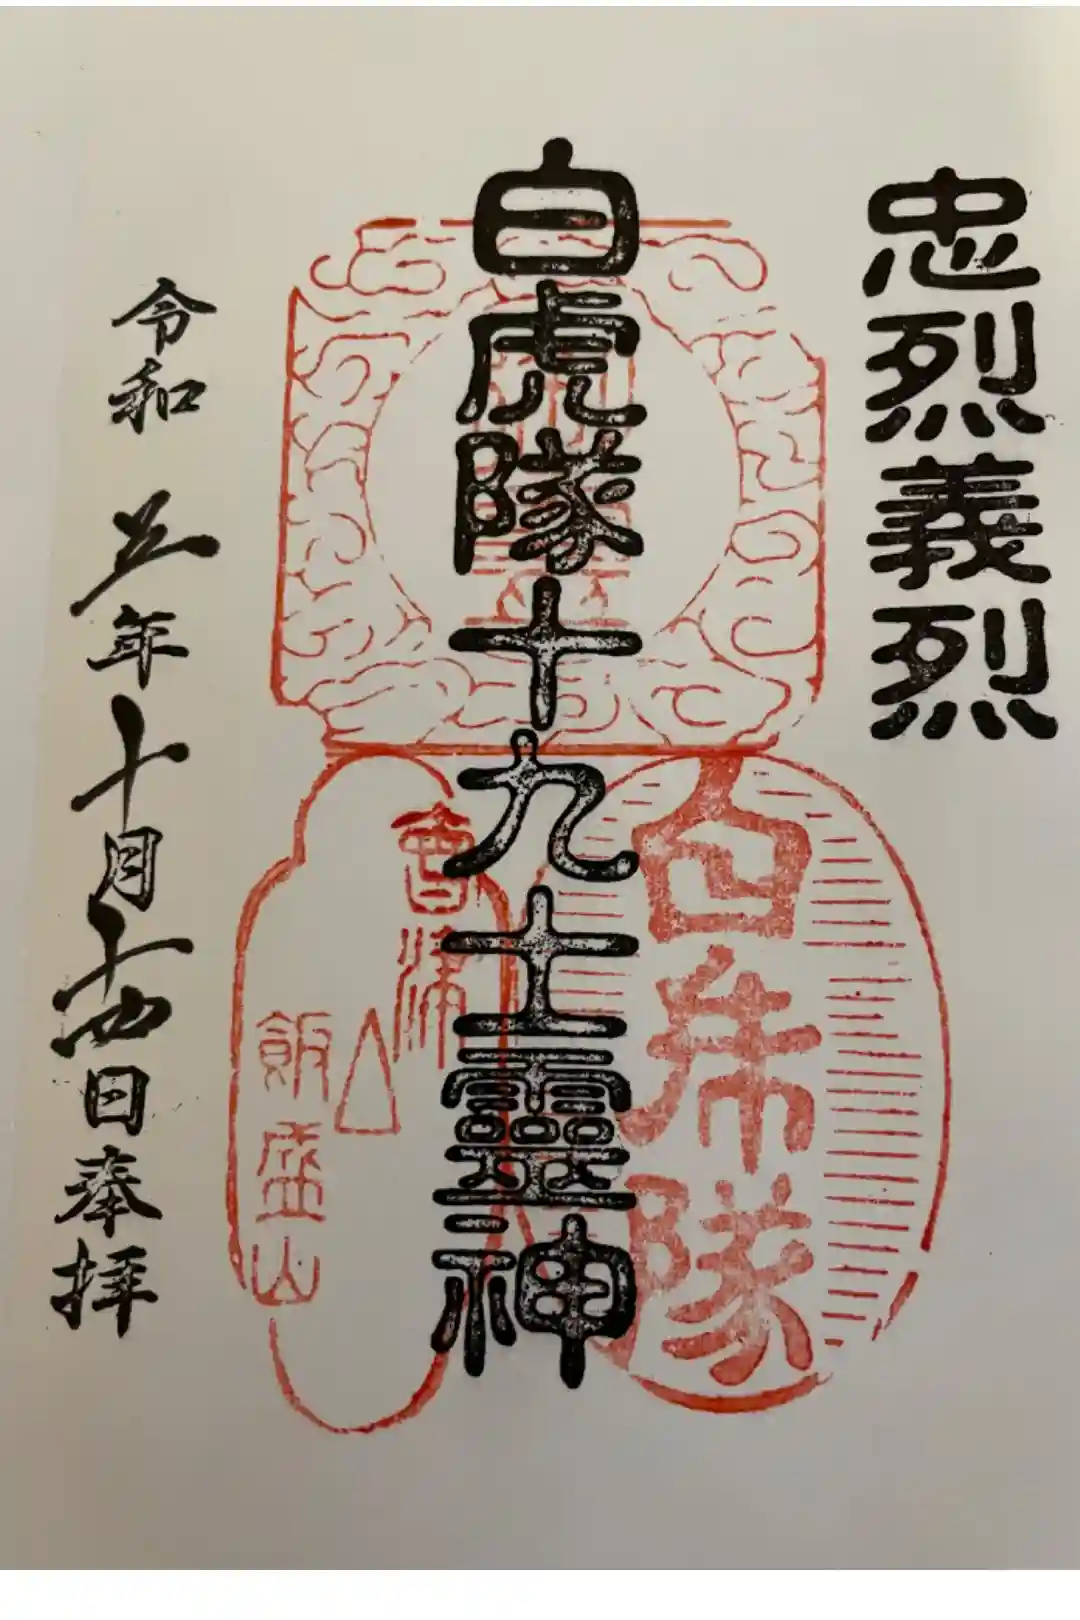 忠烈義烈
白虎隊十九士靈神
白虎隊
會津
飯盛山
令和五年十月十四日奉拝